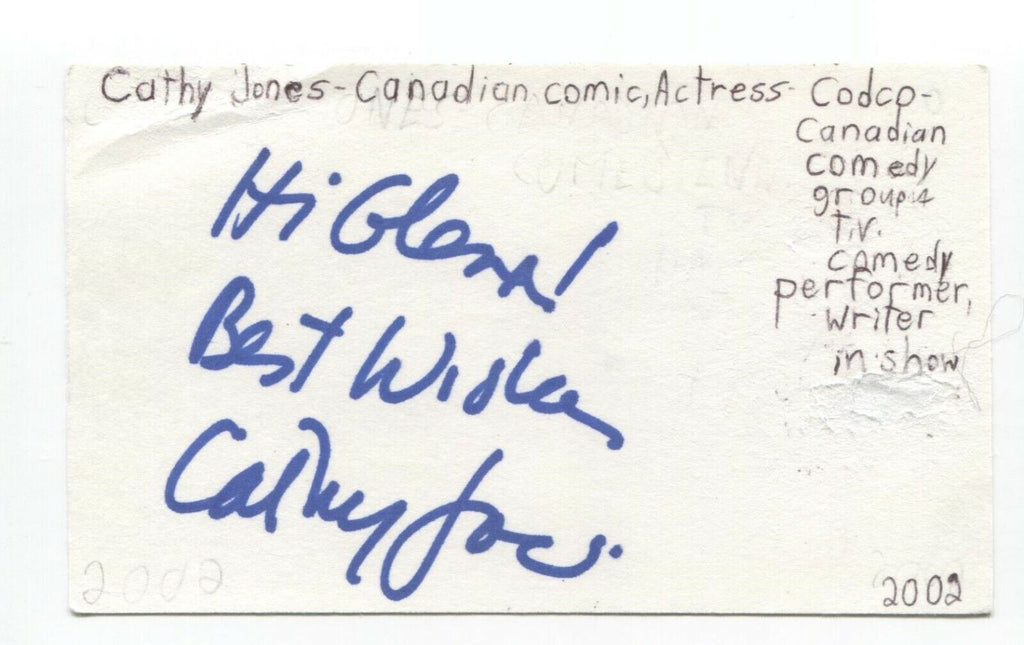 Cathy Jones - Canadian comic, Actress - Codco -
Canadian
comedy
group &
T.V.
comedy
performer,
writer
in show
Hi Glenn!
Best Wishes
Cathy Jones
2002
2002